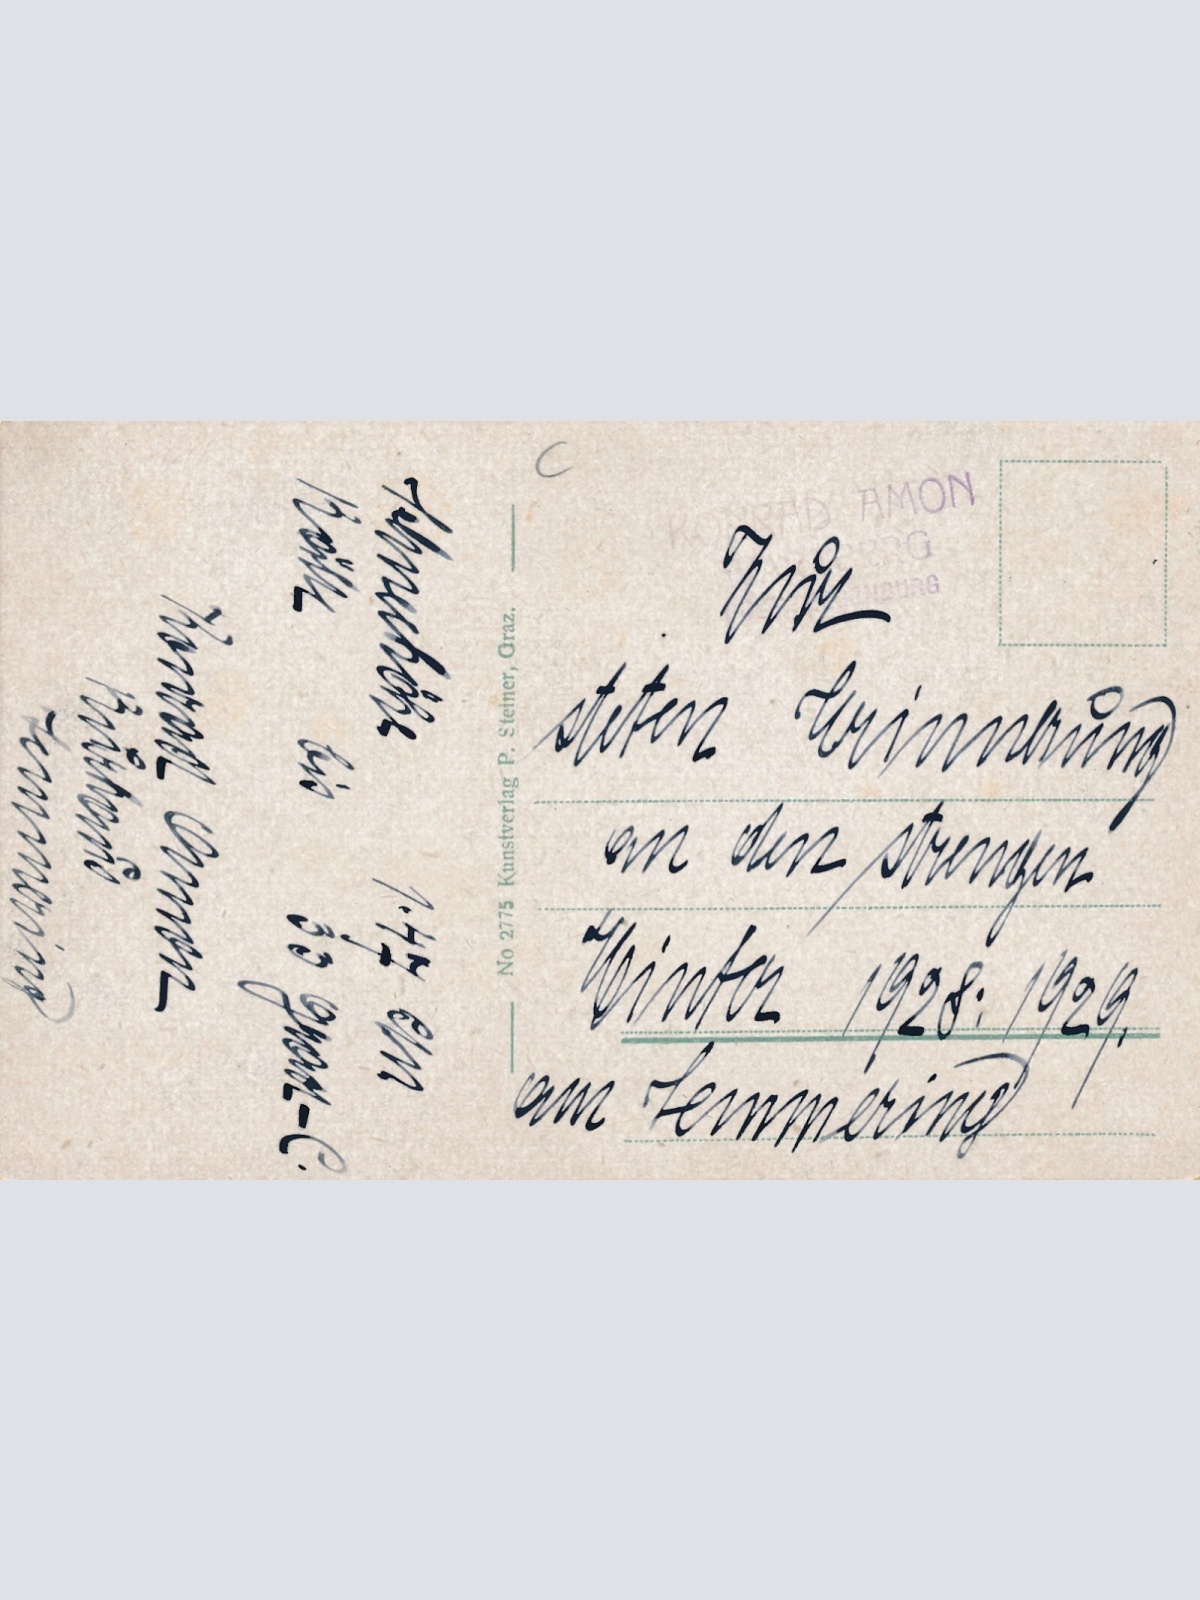 Schneehöhe 1.47 cm
Kälte bis 35 Grad-C.
Konrad Amon
Kurhaus
Semmering
No 2775 Kunstverlag P. Steiner, Graz.
C
KONRAD AMON
Zur
steten Erinnerung
an den strengen
Winter 1928: 1929.
am Semmering